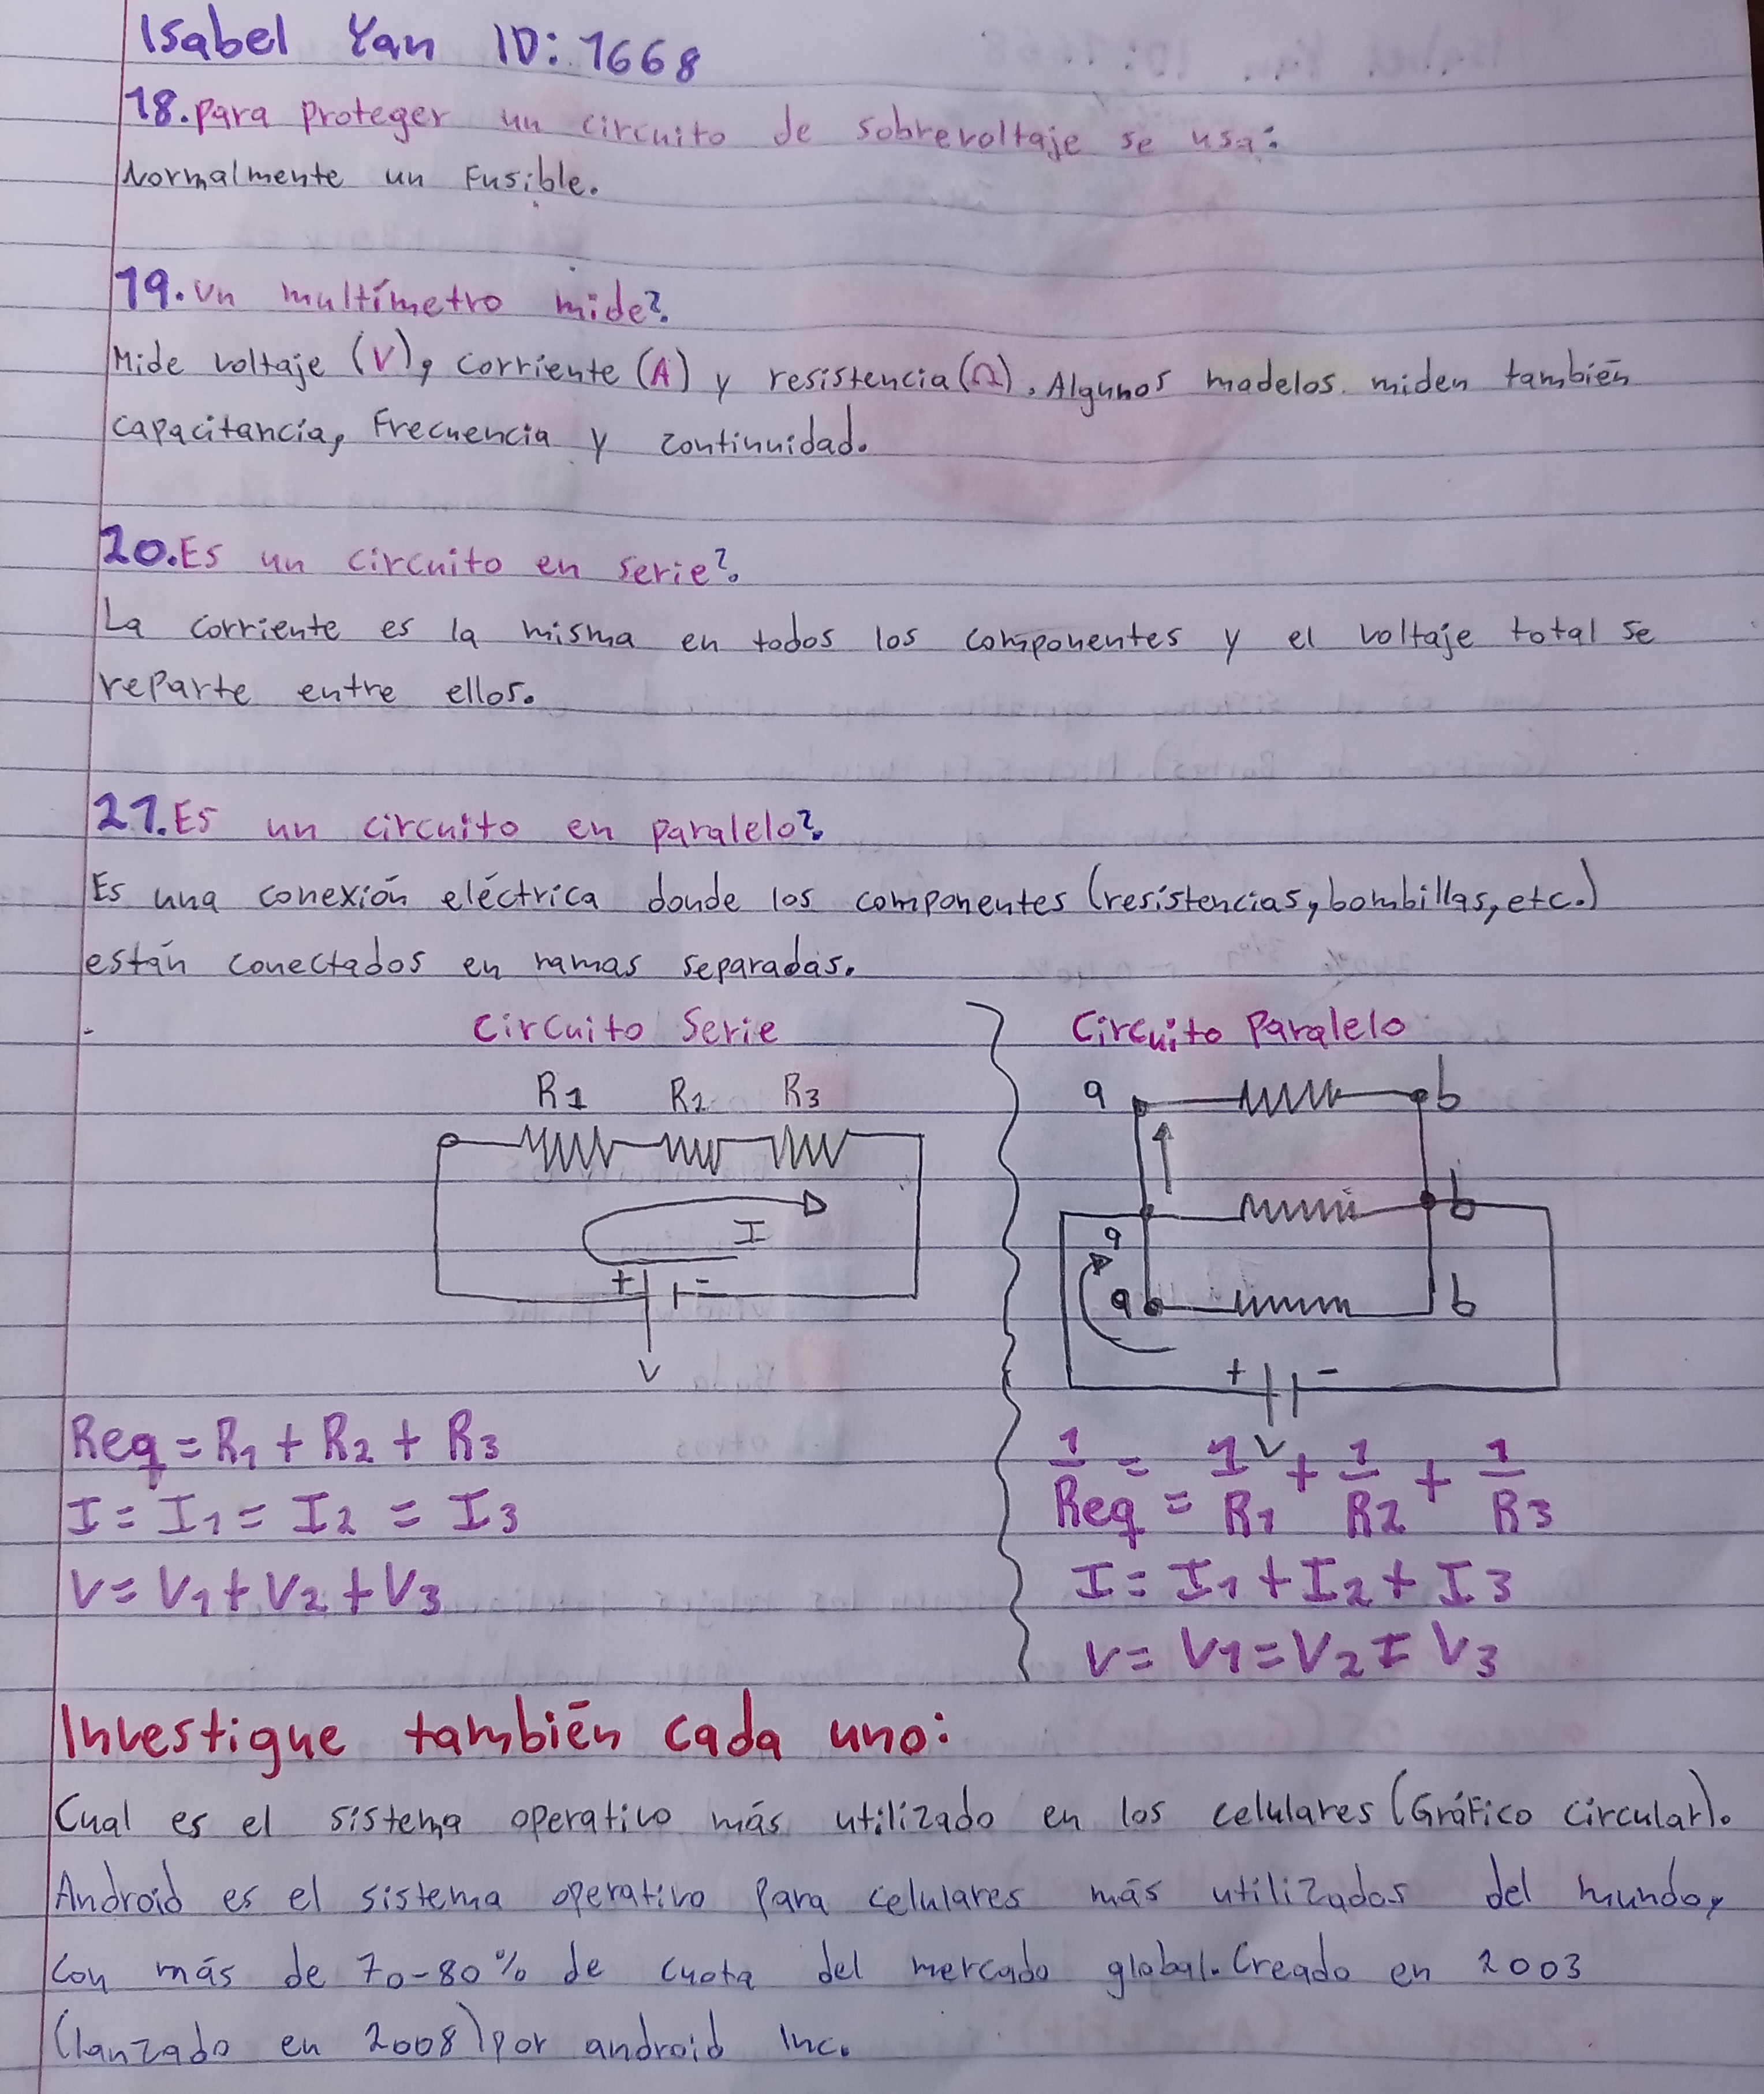 Isabel Yan ID: 1668
18. Para proteger un circuito de sobrevoltaje se usa:
Normalmente un Fusible.
19. Un multímetro mide?
Mide voltaje (V), corriente (A) y resistencia (Ω). Algunos modelos miden también
capacitancia, Frecuencia y continuidad.
20. Es un circuito en serie?
La corriente es la misma en todos los componentes y el voltaje total se
reparte entre ellos.
21. Es un circuito en paralelo?
Es una conexión eléctrica donde los componentes (resistencias, bombillas, etc.)
están conectados en ramas separadas.
Circuito Serie
R1 R2 R3
I
+ -
V
Req = R1 + R2 + R3
I = I1 = I2 = I3
V = V1 + V2 + V3
Circuito Paralelo
a b
b
a
a b
+ -
V
1/Req = 1/R1 + 1/R2 + 1/R3
I = I1 + I2 + I3
V = V1 = V2 = V3
Investigue también cada uno:
Cual es el sistema operativo más utilizado en los celulares (Gráfico circular).
Android es el sistema operativo para celulares más utilizados del mundo,
con más de 70-80% de cuota del mercado global. Creado en 2003
(lanzado en 2008) por android Inc.